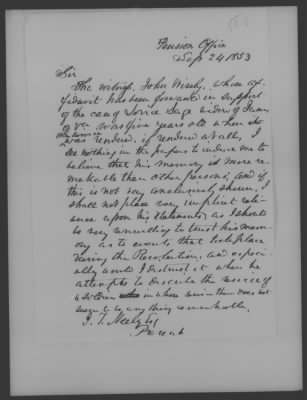 Pension Office
Sep 24 1853
Sir
The witness, John Nisely, whose af-
fidavit has been forward in support
of the case of Lovice Sage widow of James
of Va. was five years old when the
the service
was rendered, if rendered at all. I
see nothing in the papers to induce me to
believe that his memory is more re-
markable than other persons, and if
this is not very conclusively shown, I
shall not place very implicit reli-
ance upon his statements, as I should
be very unwilling to trust his mem-
ory as to events that took place
during the Revolution, and especi-
ally would I distrust it when he
attempts to describe the service of
a soldier in whose service there does not
seem to be any thing remarkable.
J. T. Neely Esq
Present